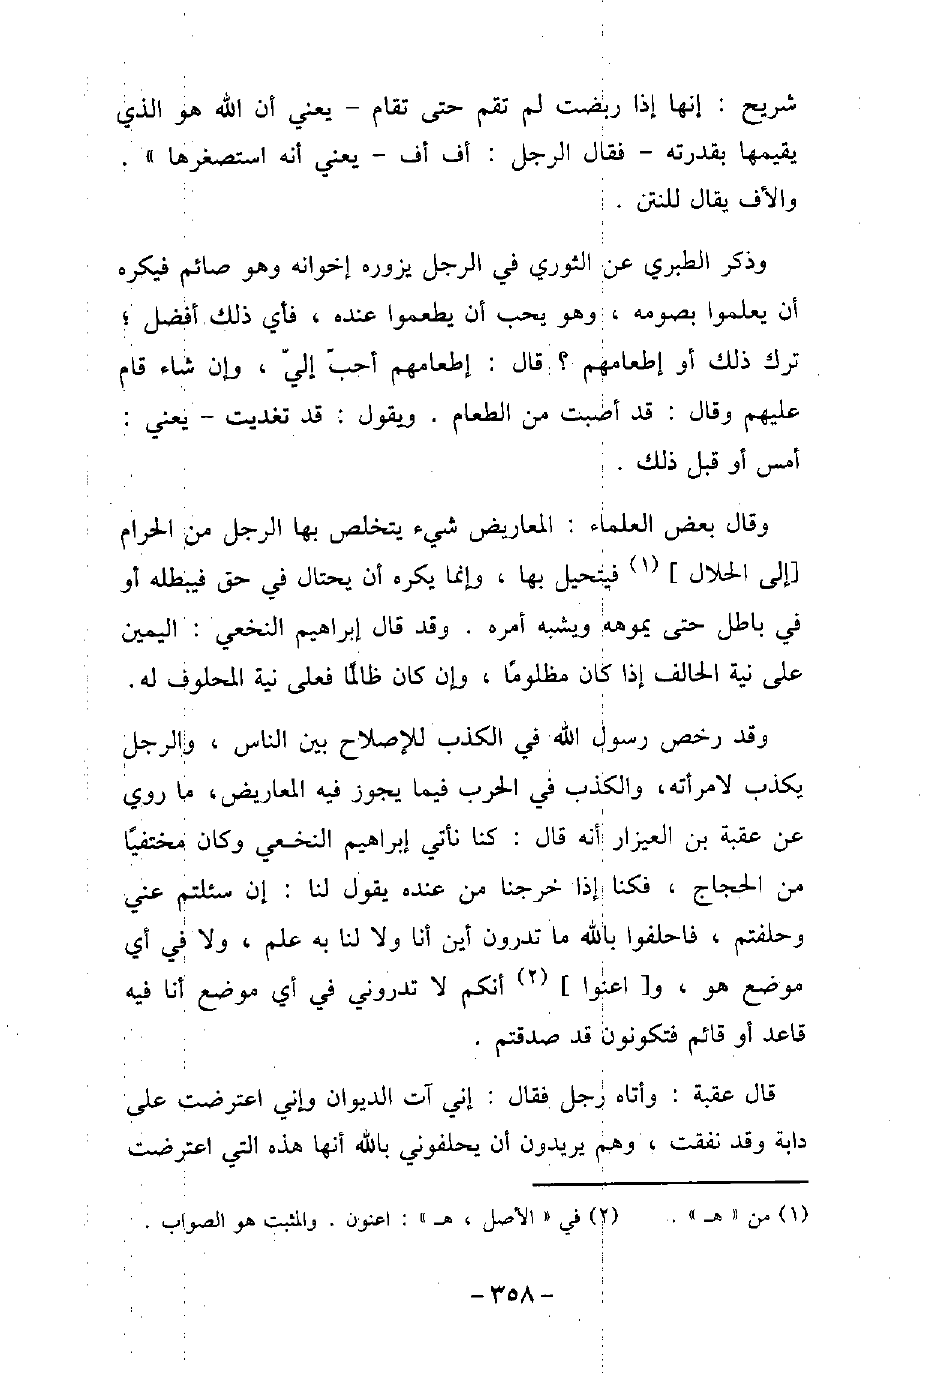 شريح : إنها إذا ربضت لم تقم حتى تقام – يعني أن الله هو الذي
يقيمها بقدرته – فقال الرجل : أف أف – يعني أنه استصغرها » .
والأف يقال للنتن .
وذكر الطبري عن الثوري في الرجل يزوره إخوانه وهو صائم فيكره
أن يعلموا بصومه ، وهو يحب أن يطعموا عنده ، فأي ذلك أفضل ؛
ترك ذلك أو إطعامهم ؟ قال : إطعامهم أحبّ إليّ ، وإن شاء قام
عليهم وقال : قد أصبت من الطعام . ويقول : قد تغديت – يعني :
أمس أو قبل ذلك .
وقال بعض العلماء : المعاريض شيء يتخلص بها الرجل من الحرام
[إلى الحلال ] (١) فيتحيل بها ، وإنما يكره أن يحتال في حق فيبطله أو
في باطل حتى يموهه ويشبه أمره . وقد قال إبراهيم النخعي : اليمين
على نية الحالف إذا كان مظلومًا ، وإن كان ظالمًا فعلى نية المحلوف له.
وقد رخص رسول الله في الكذب للإصلاح بين الناس ، والرجل
يكذب لامرأته، والكذب في الحرب فيما يجوز فيه المعاريض، ما روي
عن عقبة بن العيزار أنه قال : كنا نأتي إبراهيم النخعي وكان مختفيًا
من الحجاج ، فكنا إذا خرجنا من عنده يقول لنا : إن سئلتم عني
وحلفتم ، فاحلفوا بالله ما تدرون أين أنا ولا لنا به علم ، ولا في أي
موضع هو ، و[ اعنوا ] (٢) أنكم لا تدروني في أي موضع أنا فيه
قاعد أو قائم فتكونون قد صدقتم .
قال عقبة : وأتاه رجل فقال : إني آت الديوان وإني اعترضت على
دابة وقد نفقت ، وهم يريدون أن يحلفوني بالله أنها هذه التي اعترضت
(١) من « هـ » . (٢) في « الأصل ، هـ » : اعنون . والمثبت هو الصواب .
– ٣٥٨ –